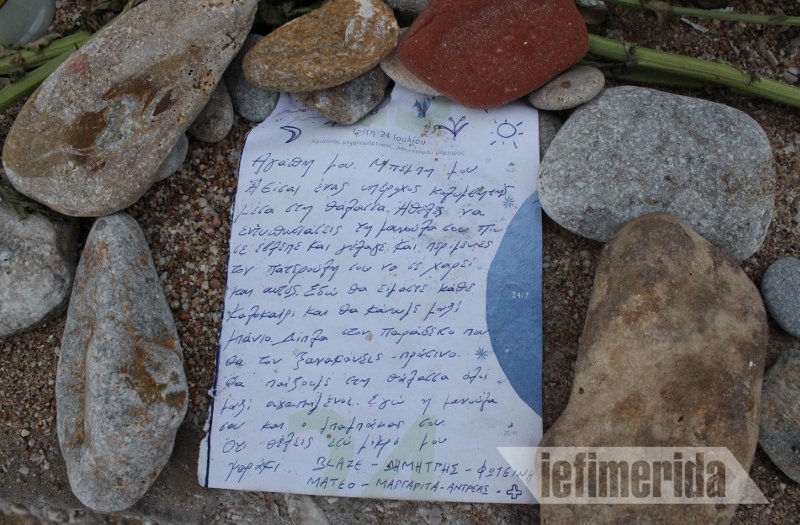 Τρίτη 24 Ιουλίου
Αγάπη μου. Μπέμπη μου
Είσαι ένας υπέροχος κολυμβητής
μέσα στη θάλασσα. Ήθελες να
εντυπωσιάσεις τη μανούλα σου που
σε έβλεπε και γέλαγε. και περίμενες
τον πατερούλη σου να σε χαρεί
και αυτός. Εδώ θα είμαστε κάθε
καλοκαίρι και θα κάνουμε μαζί
μπάνιο. Δίπλα στον παράδεισο που
θα τον ξανακάνεις πράσινο.
θα παίζουμε στη θάλασσα όλοι
μαζί αγαπημένοι. Εγώ η μανούλα
σου και ο μπαμπάκας σου.
Ότι θέλεις εσύ μικρό μου
ψαράκι. BLAZE - ΔΗΜΗΤΡΗΣ - ΦΩΤΕΙΝΗ
ΜΑΤΕΟ - ΜΑΡΓΑΡΙΤΑ - ΑΝΤΡΕΑΣ -
24/7
20:41
iefimerida